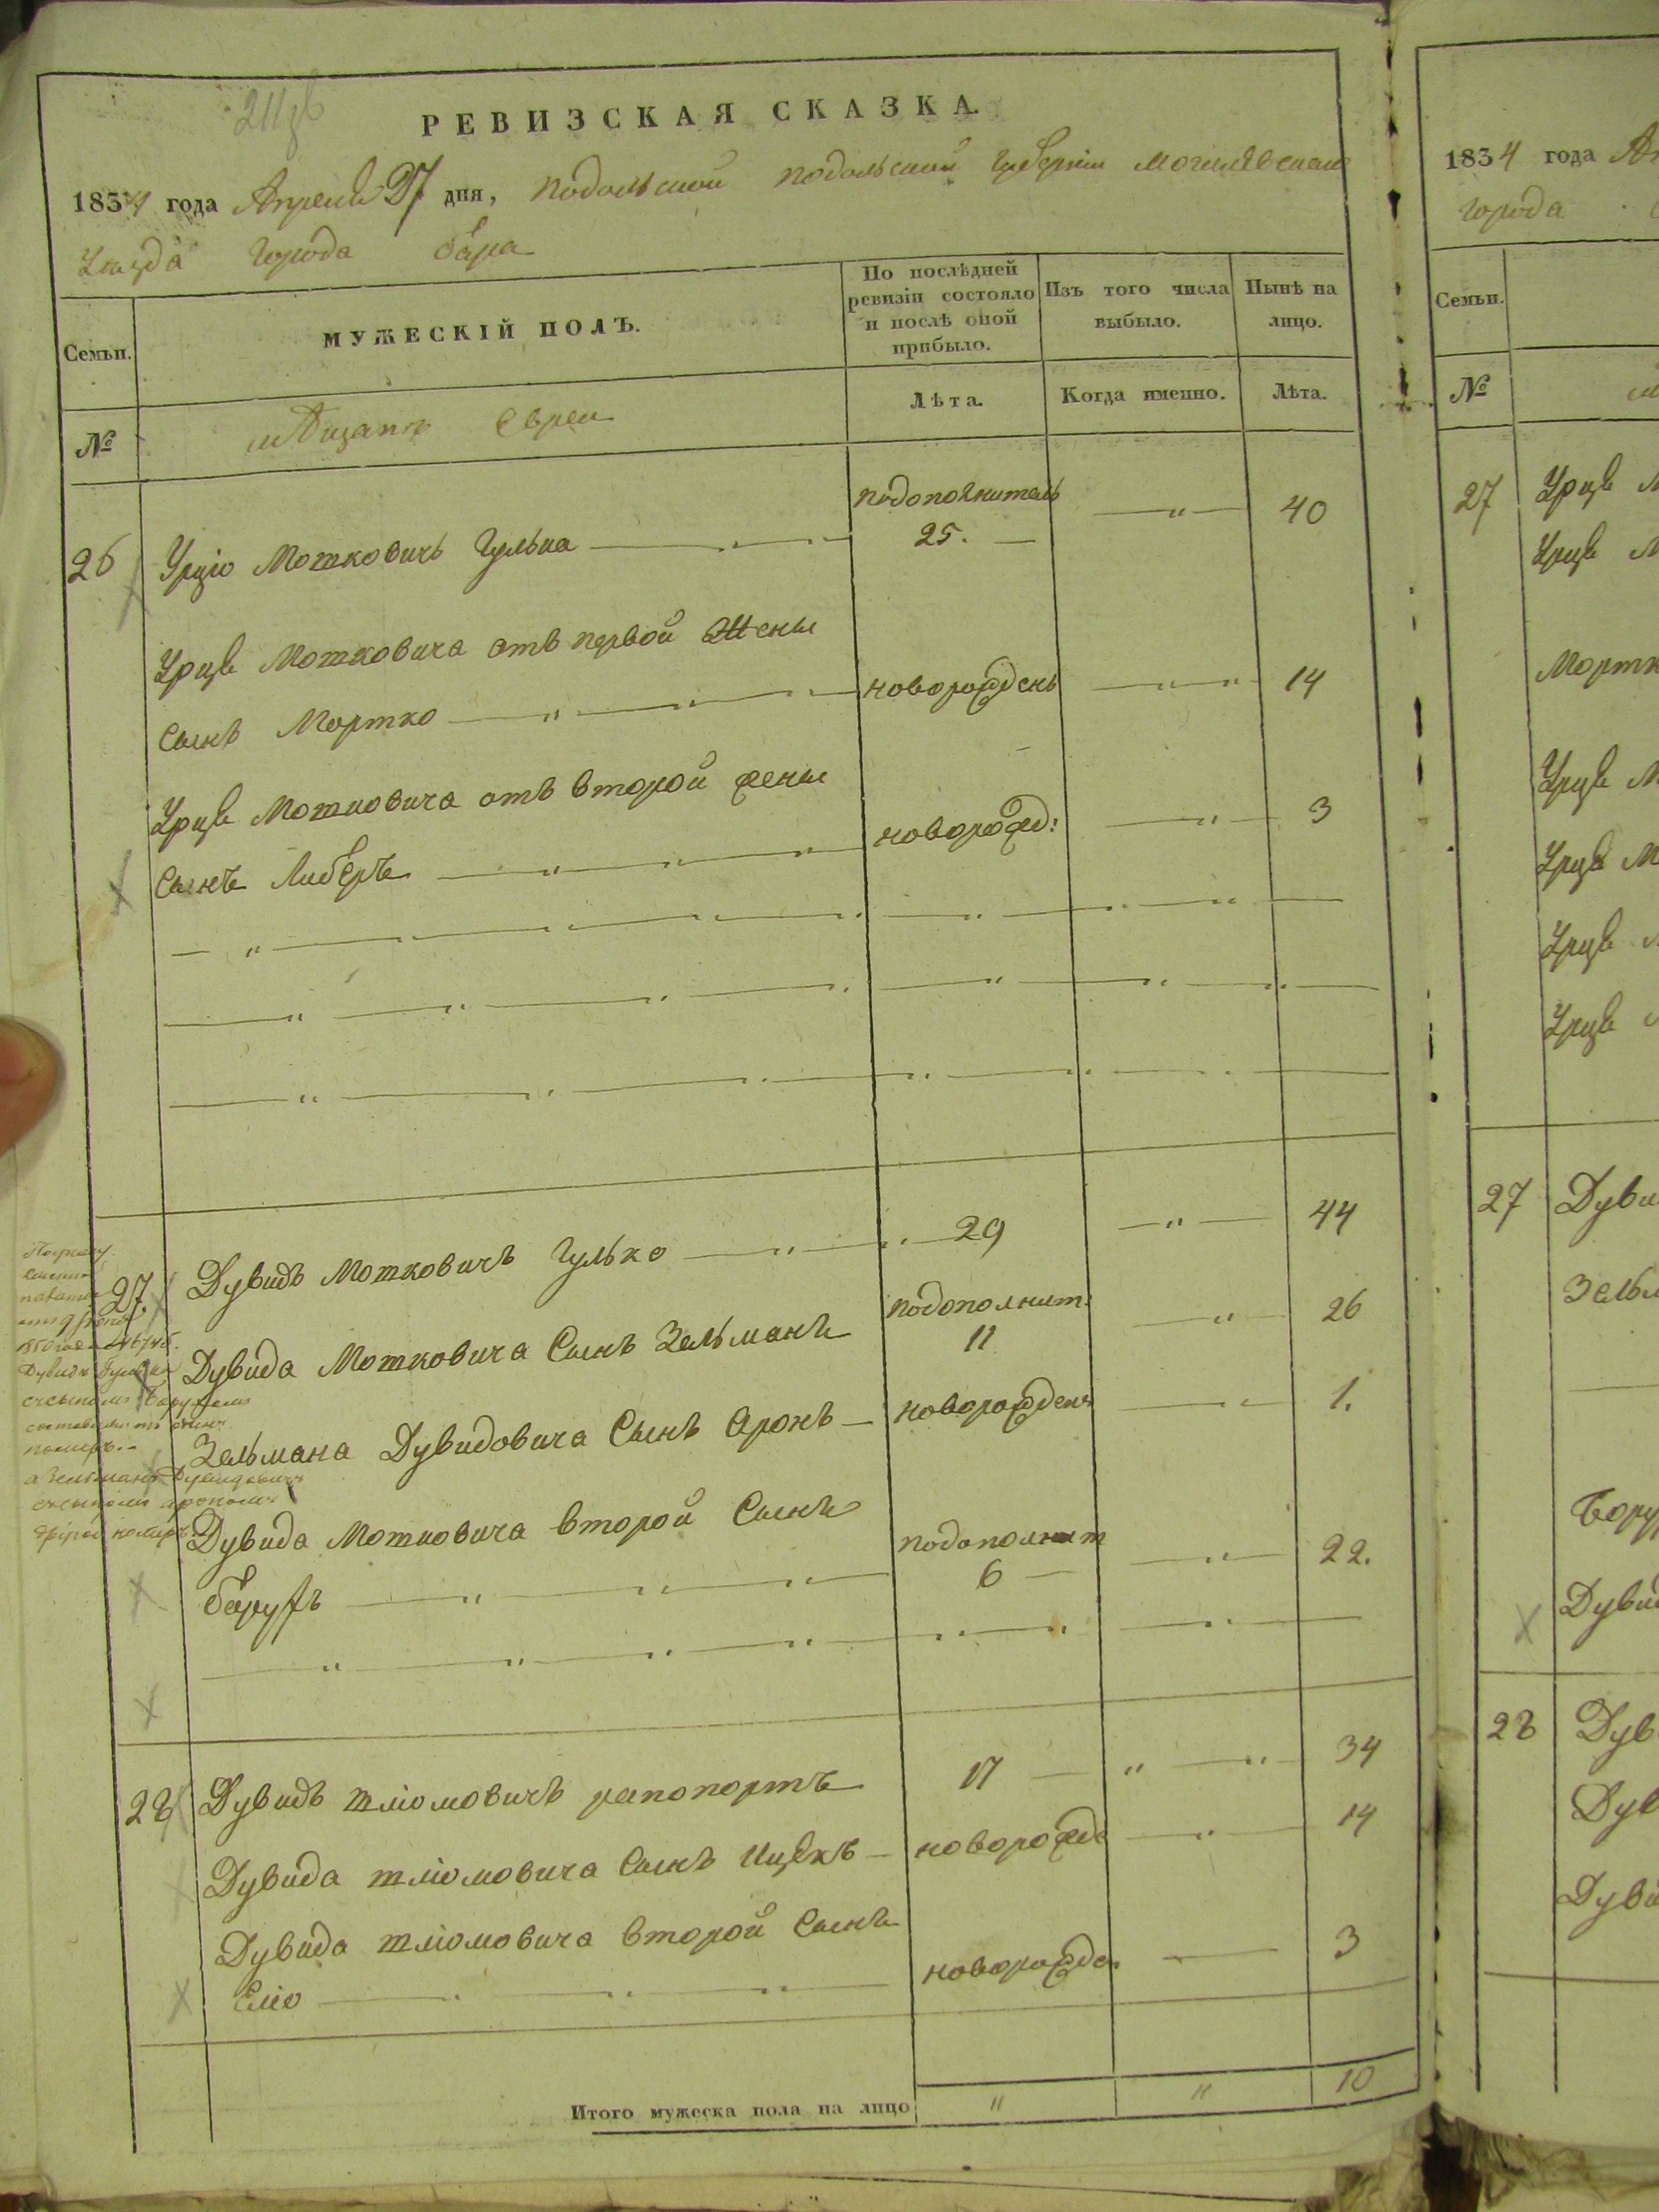 211
РЕВИЗСКАЯ СКАЗКА.
1834 года Апреля 27 дня, подольской подольской губернiи могилевскаго
Уезда города бара
Семьи.
МУЖЕСКІЙ ПОЛЪ.
По послѣдней ревизіи состояло и послѣ оной прибыло.
Изъ того числа выбыло.
Нынѣ на лицо.
№
мѣщанъ Евреи
Лѣта.
Когда именно.
Лѣта.
26 Урцiо Мотковичъ Гулька подополнитель 25. — " — 40
Урця Мотковича отъ первой Жены
сынъ Мортко — " — новорожденъ — " — 14
Урця Мотковича отъ второй жены
сынъ Либеръ — " — новорожд: — " — 3
27. Дувидъ Мотковичъ Гулько — " — 29 — " — 44
Дувида Мотковича Сынъ Зельманъ подополнит: 11 — " — 26
Зельмана Дувидовича Сынъ Аронъ — новорожденъ — " — 1.
Дувида Мотковича второй Сынъ
барухъ — " — подополнит 6 — " — 22.
28 Дувидъ шліомовичъ рапопортъ 17 — " — " — 34
Дувида шліомовича Сынъ Ицекъ — новорожд — " — 14
Дувида шліомовича второй Сынъ
Еліо — новорожде. — 3
Итого мужеска пола на лицо " " 10
1834 года
города
Семьи.
№
27 Урця
Урця
Мортк
Урця
Урця
Урця
Урця
27 Дуви
Зельм
Бору
Дувид
28 Дув
Дув
Дуви